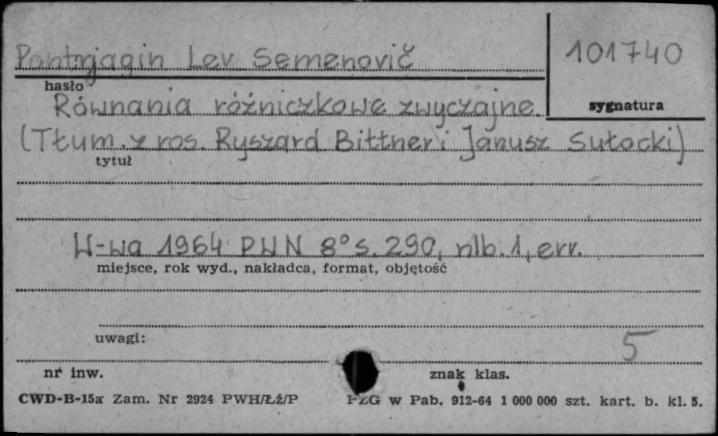 Pontrjagin Lev Semenovič
101740
hasło
Równania różniczkowe zwyczajne.
sygnatura
(Tłum. z ros. Ryszard Bittner i Janusz Sułocki)
tytuł
W-wa 1964 PWN 8° s. 290, nlb. 1, err.
miejsce, rok wyd., nakładca, format, objętość
uwagi:
5
nr inw.
znak klas.
CWD-B-15a Zam. Nr 2924 PWH/Łź/P
PZG w Pab. 912-64 1 000 000 szt. kart. b. kl. 5.